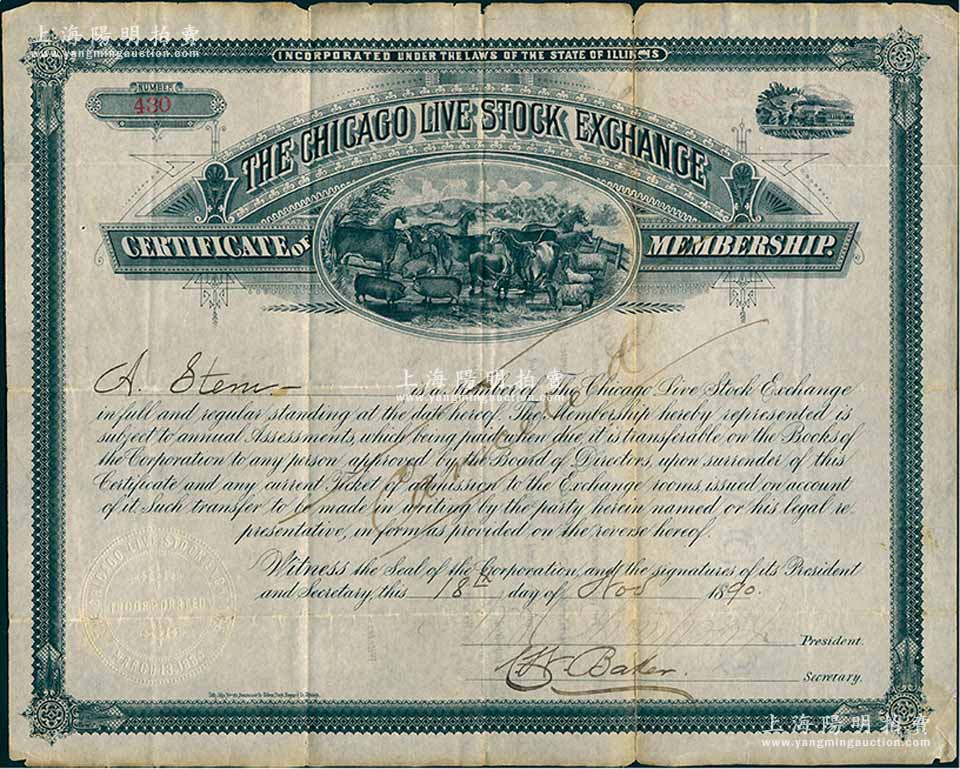 上海陽明拍賣
www.yangmingauction.com
INCORPORATED UNDER THE LAWS OF THE STATE OF ILLINOIS
NUMBER
430
THE CHICAGO LIVE STOCK EXCHANGE
CERTIFICATE OF MEMBERSHIP.
A. Stern
is a member of The Chicago Live Stock Exchange
in full and regular standing at the date hereof. The Membership hereby represented is
subject to annual Assessments, which being paid when due, it is transferable on the Books of
the Corporation to any person approved by the Board of Directors, upon surrender of this
Certificate and any current Ticket of admission to the Exchange rooms, issued on account
of it. Such transfer to be made in writing by the party herein named or his legal re
presentative, in form as provided on the reverse hereof.
Cancelled
上海陽明拍賣
www.yangmingauction.com
Witness the Seal of the Corporation, and the signatures of its President
and Secretary, this 18th day of Nov 1890.
CHICAGO LIVE STOCK
INCORPORATED
MARCH 13, 188
President.
Baker.
Secretary.
上海陽明拍賣
www.yangmingauction.com